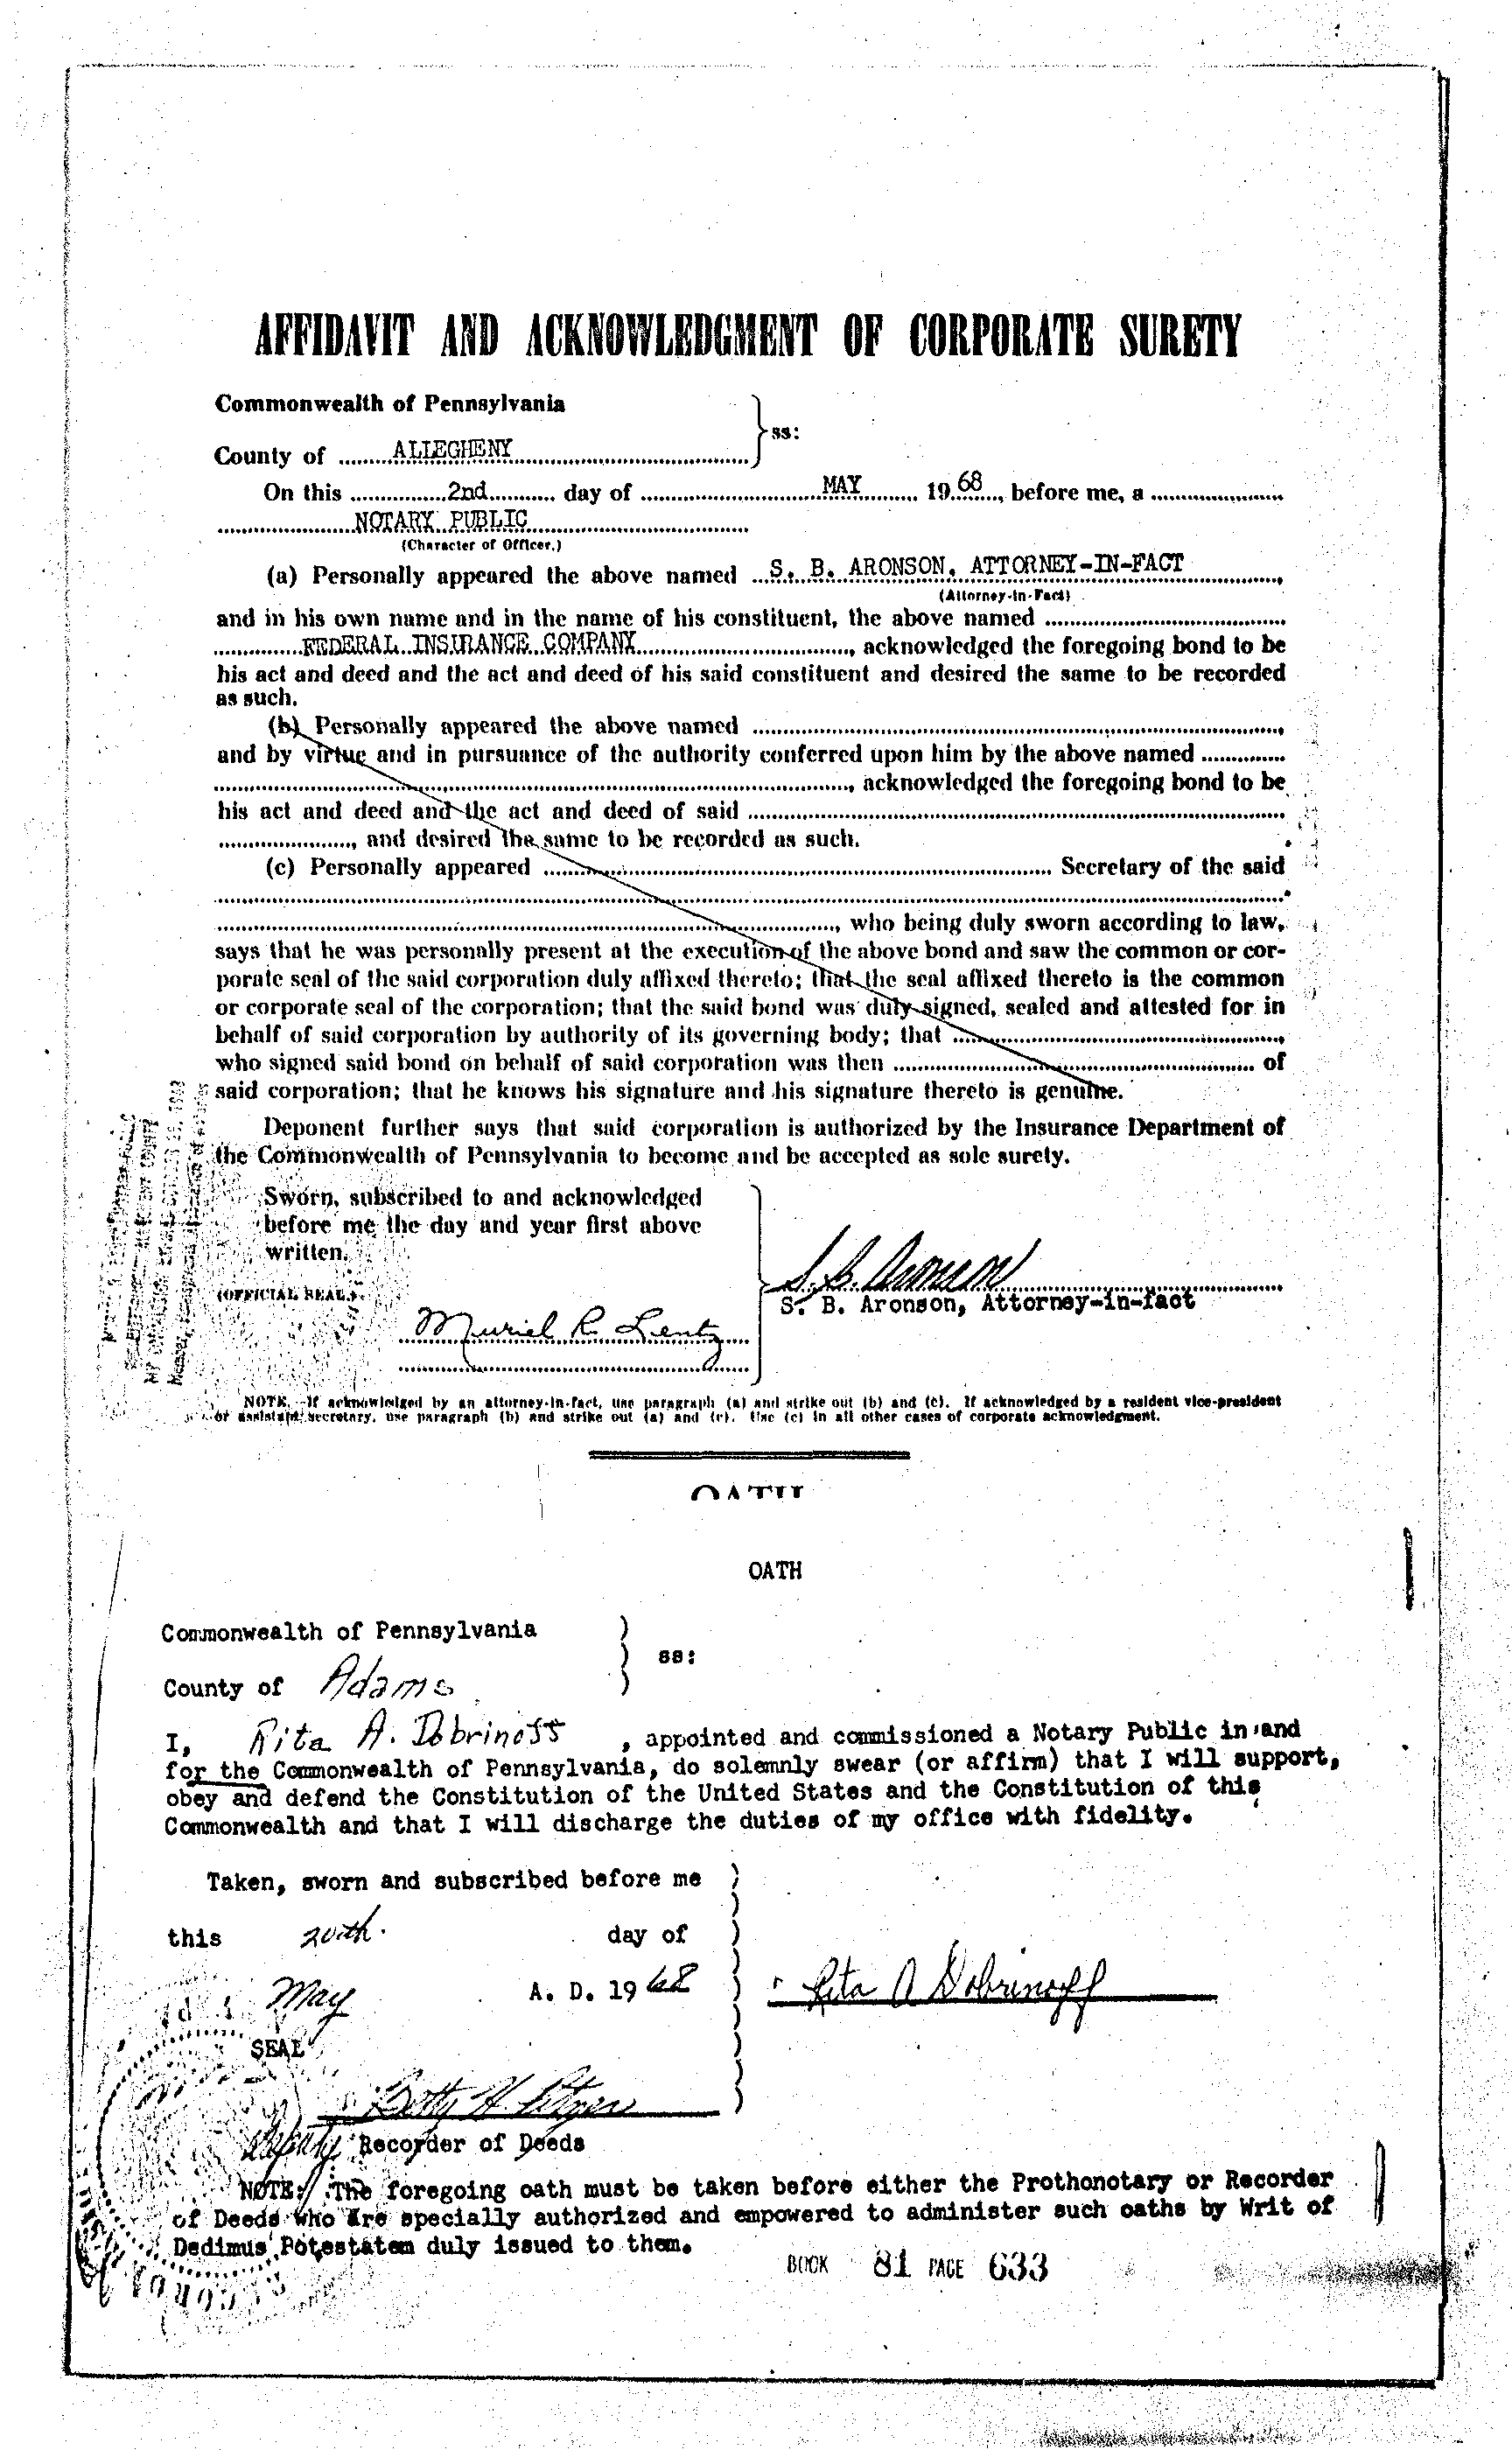 AFFIDAVIT AND ACKNOWLEDGMENT OF CORPORATE SURETY
Commonwealth of Pennsylvania
ss:
County of ALLEGHENY
On this 2nd day of MAY 1968, before me, a
NOTARY PUBLIC
(Character of Officer.)
(a) Personally appeared the above named S. B. ARONSON, ATTORNEY-IN-FACT,
(Attorney-in-Fact)
and in his own name and in the name of his constituent, the above named
FEDERAL INSURANCE COMPANY, acknowledged the foregoing bond to be
his act and deed and the act and deed of his said constituent and desired the same to be recorded
as such.
(b) Personally appeared the above named ,
and by virtue and in pursuance of the authority conferred upon him by the above named
, acknowledged the foregoing bond to be
his act and deed and the act and deed of said
, and desired the same to be recorded as such.
(c) Personally appeared Secretary of the said
, who being duly sworn according to law,
says that he was personally present at the execution of the above bond and saw the common or cor-
porate seal of the said corporation duly affixed thereto; that the seal affixed thereto is the common
or corporate seal of the corporation; that the said bond was duly signed, sealed and attested for in
behalf of said corporation by authority of its governing body; that ,
who signed said bond on behalf of said corporation was then of
said corporation; that he knows his signature and his signature thereto is genuine.
Deponent further says that said corporation is authorized by the Insurance Department of
the Commonwealth of Pennsylvania to become and be accepted as sole surety.
Sworn, subscribed to and acknowledged
before me the day and year first above
written.
(OFFICIAL SEAL)
S. B. Aronson
S. B. Aronson, Attorney-in-fact
Muriel R. Lentz
NOTE. If acknowledged by an attorney-in-fact, use paragraph (a) and strike out (b) and (c). If acknowledged by a resident vice-president
or assistant secretary, use paragraph (b) and strike out (a) and (c). Use (c) in all other cases of corporate acknowledgment.
OATH
OATH
Commonwealth of Pennsylvania
ss:
County of Adams
I, Rita A. Dobrinoff, appointed and commissioned a Notary Public in and
for the Commonwealth of Pennsylvania, do solemnly swear (or affirm) that I will support,
obey and defend the Constitution of the United States and the Constitution of this
Commonwealth and that I will discharge the duties of my office with fidelity.
Taken, sworn and subscribed before me
this 20th. day of
May A. D. 1968
Rita A Dobrinoff
SEAL
Betty H
Deputy Recorder of Deeds
NOTE: The foregoing oath must be taken before either the Prothonotary or Recorder
of Deeds who are specially authorized and empowered to administer such oaths by Writ of
Dedimus Potestatem duly issued to them.
BOOK 81 PAGE 633